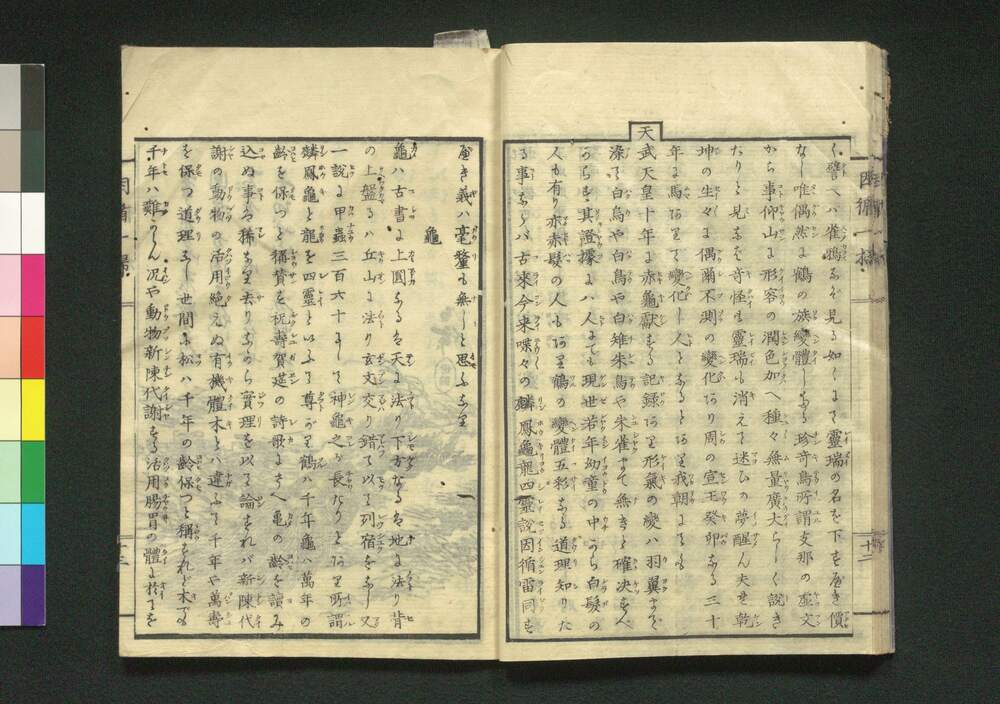 く譬へハ雀鴉を見る如くにて靈瑞の名を下す可き價
なし唯偶然に鶴の族變體しある珍奇鳥所謂支那の歪文
から事仰山に形容の潤色加へ種々無量廣大らしく說き
たりと見なを奇怪も靈瑞も消えて迷ひの夢醒ん夫世乾
坤の生々ま偶爾不測の變化あり周の宣王癸卯なる三十
年に馬ありて變化し人となるとあり我朝にても
天武天皇十年に赤龜獻する記録あり形氣の變ハ羽翼まで
染て白烏や白鳥や白雉朱鳥や朱雀まで無きと確決すへ
からす其證據にハ人まても現世若年幼童の中から白髮の
人も有り亦赤髮の人もあり鶴の變體五彩なる道理知りた
る事ならハ古來今来喋々の麟鳳龜龍四靈說因循雷同す
可き義ハ毫釐も無しと思ふなり
龜
龜ハ古書に上圓なるは天に法り下方なるは地に法り背
の上盤るハ丘山に法り玄文交り錯て以て列宿をなし又
一說に甲蟲三百六十にして神龜之が長たりとあり所謂
麟鳳龜と龍を四靈といふて尊かり鶴ハ千年龜ハ萬年の
齡を保つと稱賛を祝壽賀筵の詩歌にさへ亀の齡を讀み
込ぬ事ハ稀なり去りながら實理を以て論をれバ新陳代
謝の動物の活用絶えぬ有機體木とハ違ふて千年や萬壽
を保つ道理なし世間に松ハ千年の齡保つと稱をれど木すら
千年ハ難からん况や動物新陳代謝をる活用腸胃の體に於てを
十二
十三